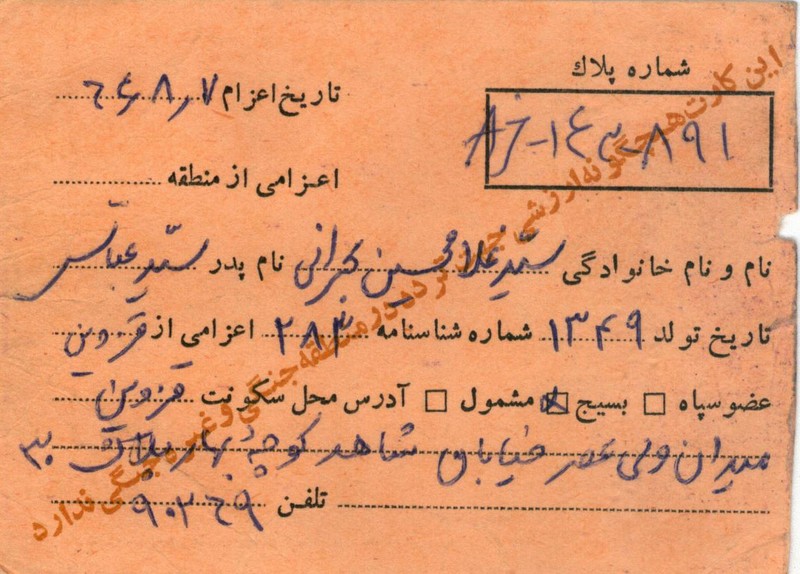 شماره پلاك
AJ-۱٤۳-۸۹۱
تاریخ اعزام ۶٤٫۸٫۷
اعزامی از منطقه
نام و نام خانوادگی سیّد غلامحسین بحرانی نام پدر سیّد عباس
تاریخ تولد ۱۳۴۹ شماره شناسنامه ۲۸۳ اعزامی از قزوین
عضو سپاه □ بسیج ☒ مشمول □ آدرس محل سکونت قزوین
میدان ولی عصر خیابان شاهد کوچه بهار پلاک ۳۰
تلفن ۹۰۲۶۹
این کارت هیچگونه ارزشی جهت تردد در منطقه جنگی و غیره جنگی ندارد